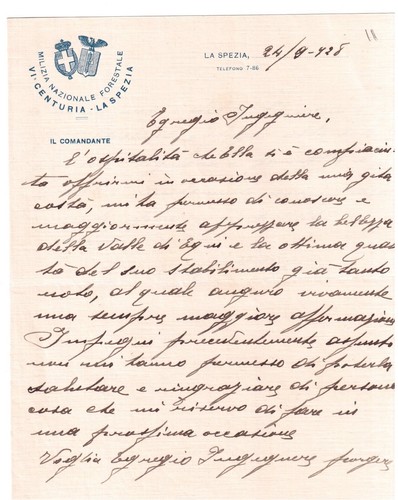 MILIZIA NAZIONALE FORESTALE
VIª CENTURIA - LA SPEZIA
LA SPEZIA, 24/9-928
TELEFONO 7-86
11
IL COMANDANTE
Egregio Ingegnere,
L'ospitalità che Ella si è compiaciu-
to offrirmi in occasione della mia gita
costà, mi ha permesso di conoscere e
maggiormente apprezzare la bellezza
della Valle di Egni e la ottima quali
tà del suo stabilimento già tanto
noto, al quale auguro vivamente
una sempre maggiore affermazione
Impegni precedentemente assunti
non mi hanno permesso di poterla
salutare e ringraziare di persona
cosa che mi riservo di fare in
una prossima occasione
Voglia Egregio Ingegnere porgere